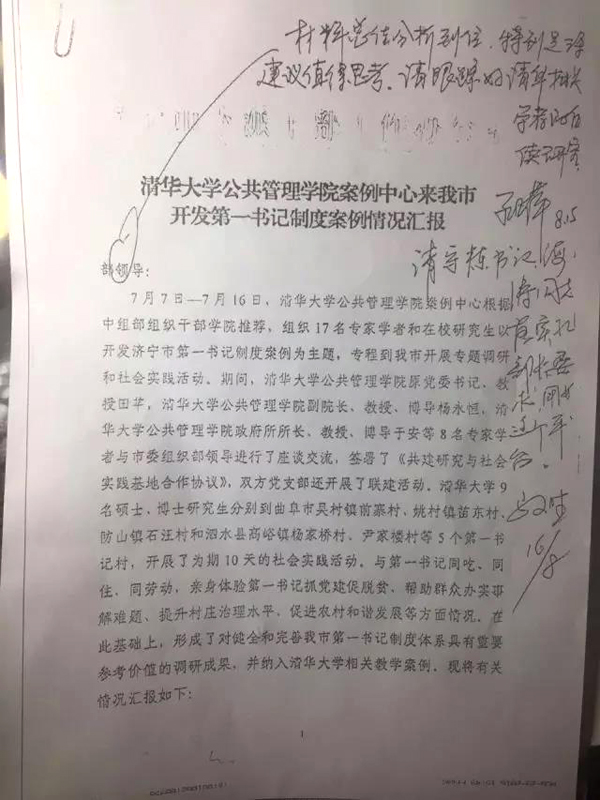 材料总结分析到位、特别是
建议值得思考、请跟踪好清华相关
学者的后
续研究。
8.15
清华大学公共管理学院案例中心来我市
开发第一书记制度案例情况汇报
部领导：
7月7日—7月16日，清华大学公共管理学院案例中心根据
中组部组织干部学院推荐，组织17名专家学者和在校研究生以
开发济宁市第一书记制度案例为主题，专程到我市开展专题调研
和社会实践活动。期间，清华大学公共管理学院原党委书记、教
授田芊，清华大学公共管理学院副院长、教授、博导杨永恒，清
华大学公共管理学院政府所所长、教授、博导于安等8名专家学
者与市委组织部领导进行了座谈交流，签署了《共建研究与社会
实践基地合作协议》，双方党支部还开展了联建活动。清华大学9
名硕士、博士研究生分别到曲阜市吴村镇前寨村、姚村镇苗东村、
防山镇石汪村和泗水县高峪镇杨家桥村、尹家楼村等5个第一书
记村，开展了为期10天的社会实践活动。与第一书记同吃、同
住、同劳动，亲身体验第一书记抓党建促脱贫，帮助群众办实事
解难题、提升村庄治理水平、促进农村和谐发展等方面情况。在
此基础上，形成了对健全和完善我市第一书记制度体系具有重要
参考价值的调研成果，并纳入清华大学相关教学案例。现将有关
情况汇报如下：
16/8
1